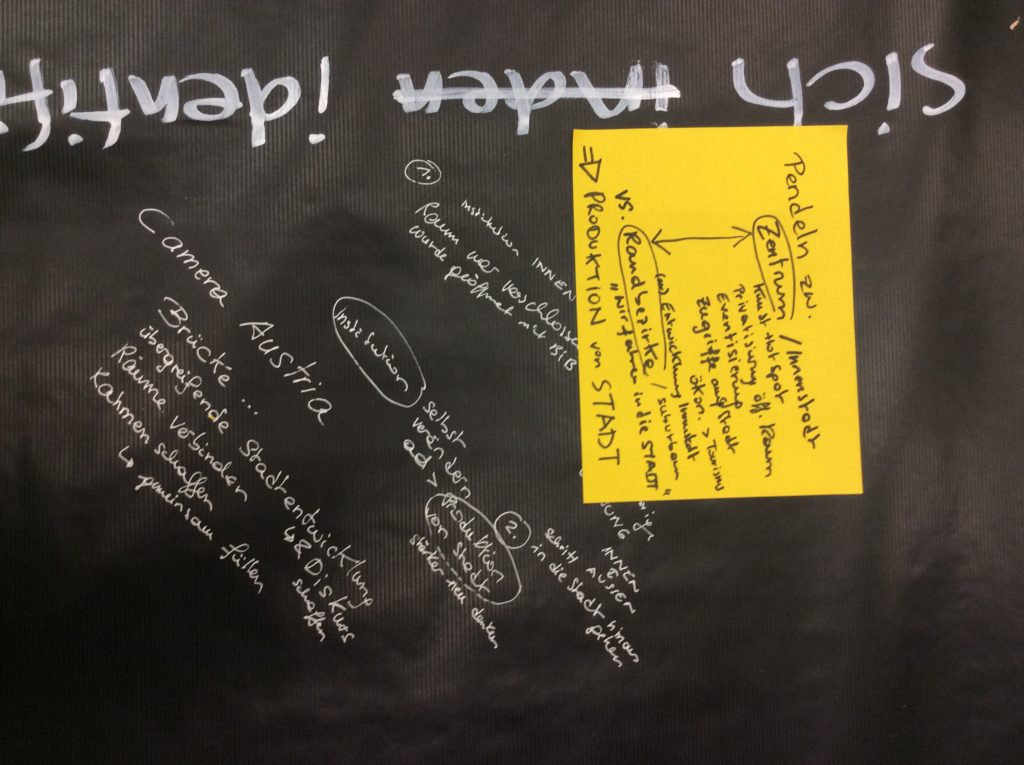 sich inden identifi
Pendeln zw.
Zentrum / Innenstadt
Kunst Hot Spot
Privatisierung öff. Raum
Eventisierung
Zugriffe auf Stadt
ökon. > Tourismus
Entwicklung Innenstadt
vs. Randbezirke / suburban
"Wir fahren in die STADT"
⇒ PRODUKTION von STADT
1.
Institution INNEN
Raum war verschlossen
wurde geöffnet mit BIB
2.
INNEN
&
AUSSEN
Schritt
in die Stadt hinaus
gehen
Institution
selbst
verändern
ad >
Produktion
von Stadt
stärker neu denken
Camera Austria
Brücke ...
übergreifende Stadtentwicklung
↳ & Diskurs
schaffen
Räume verbinden
Rahmen schaffen
↳ gemeinsam füllen